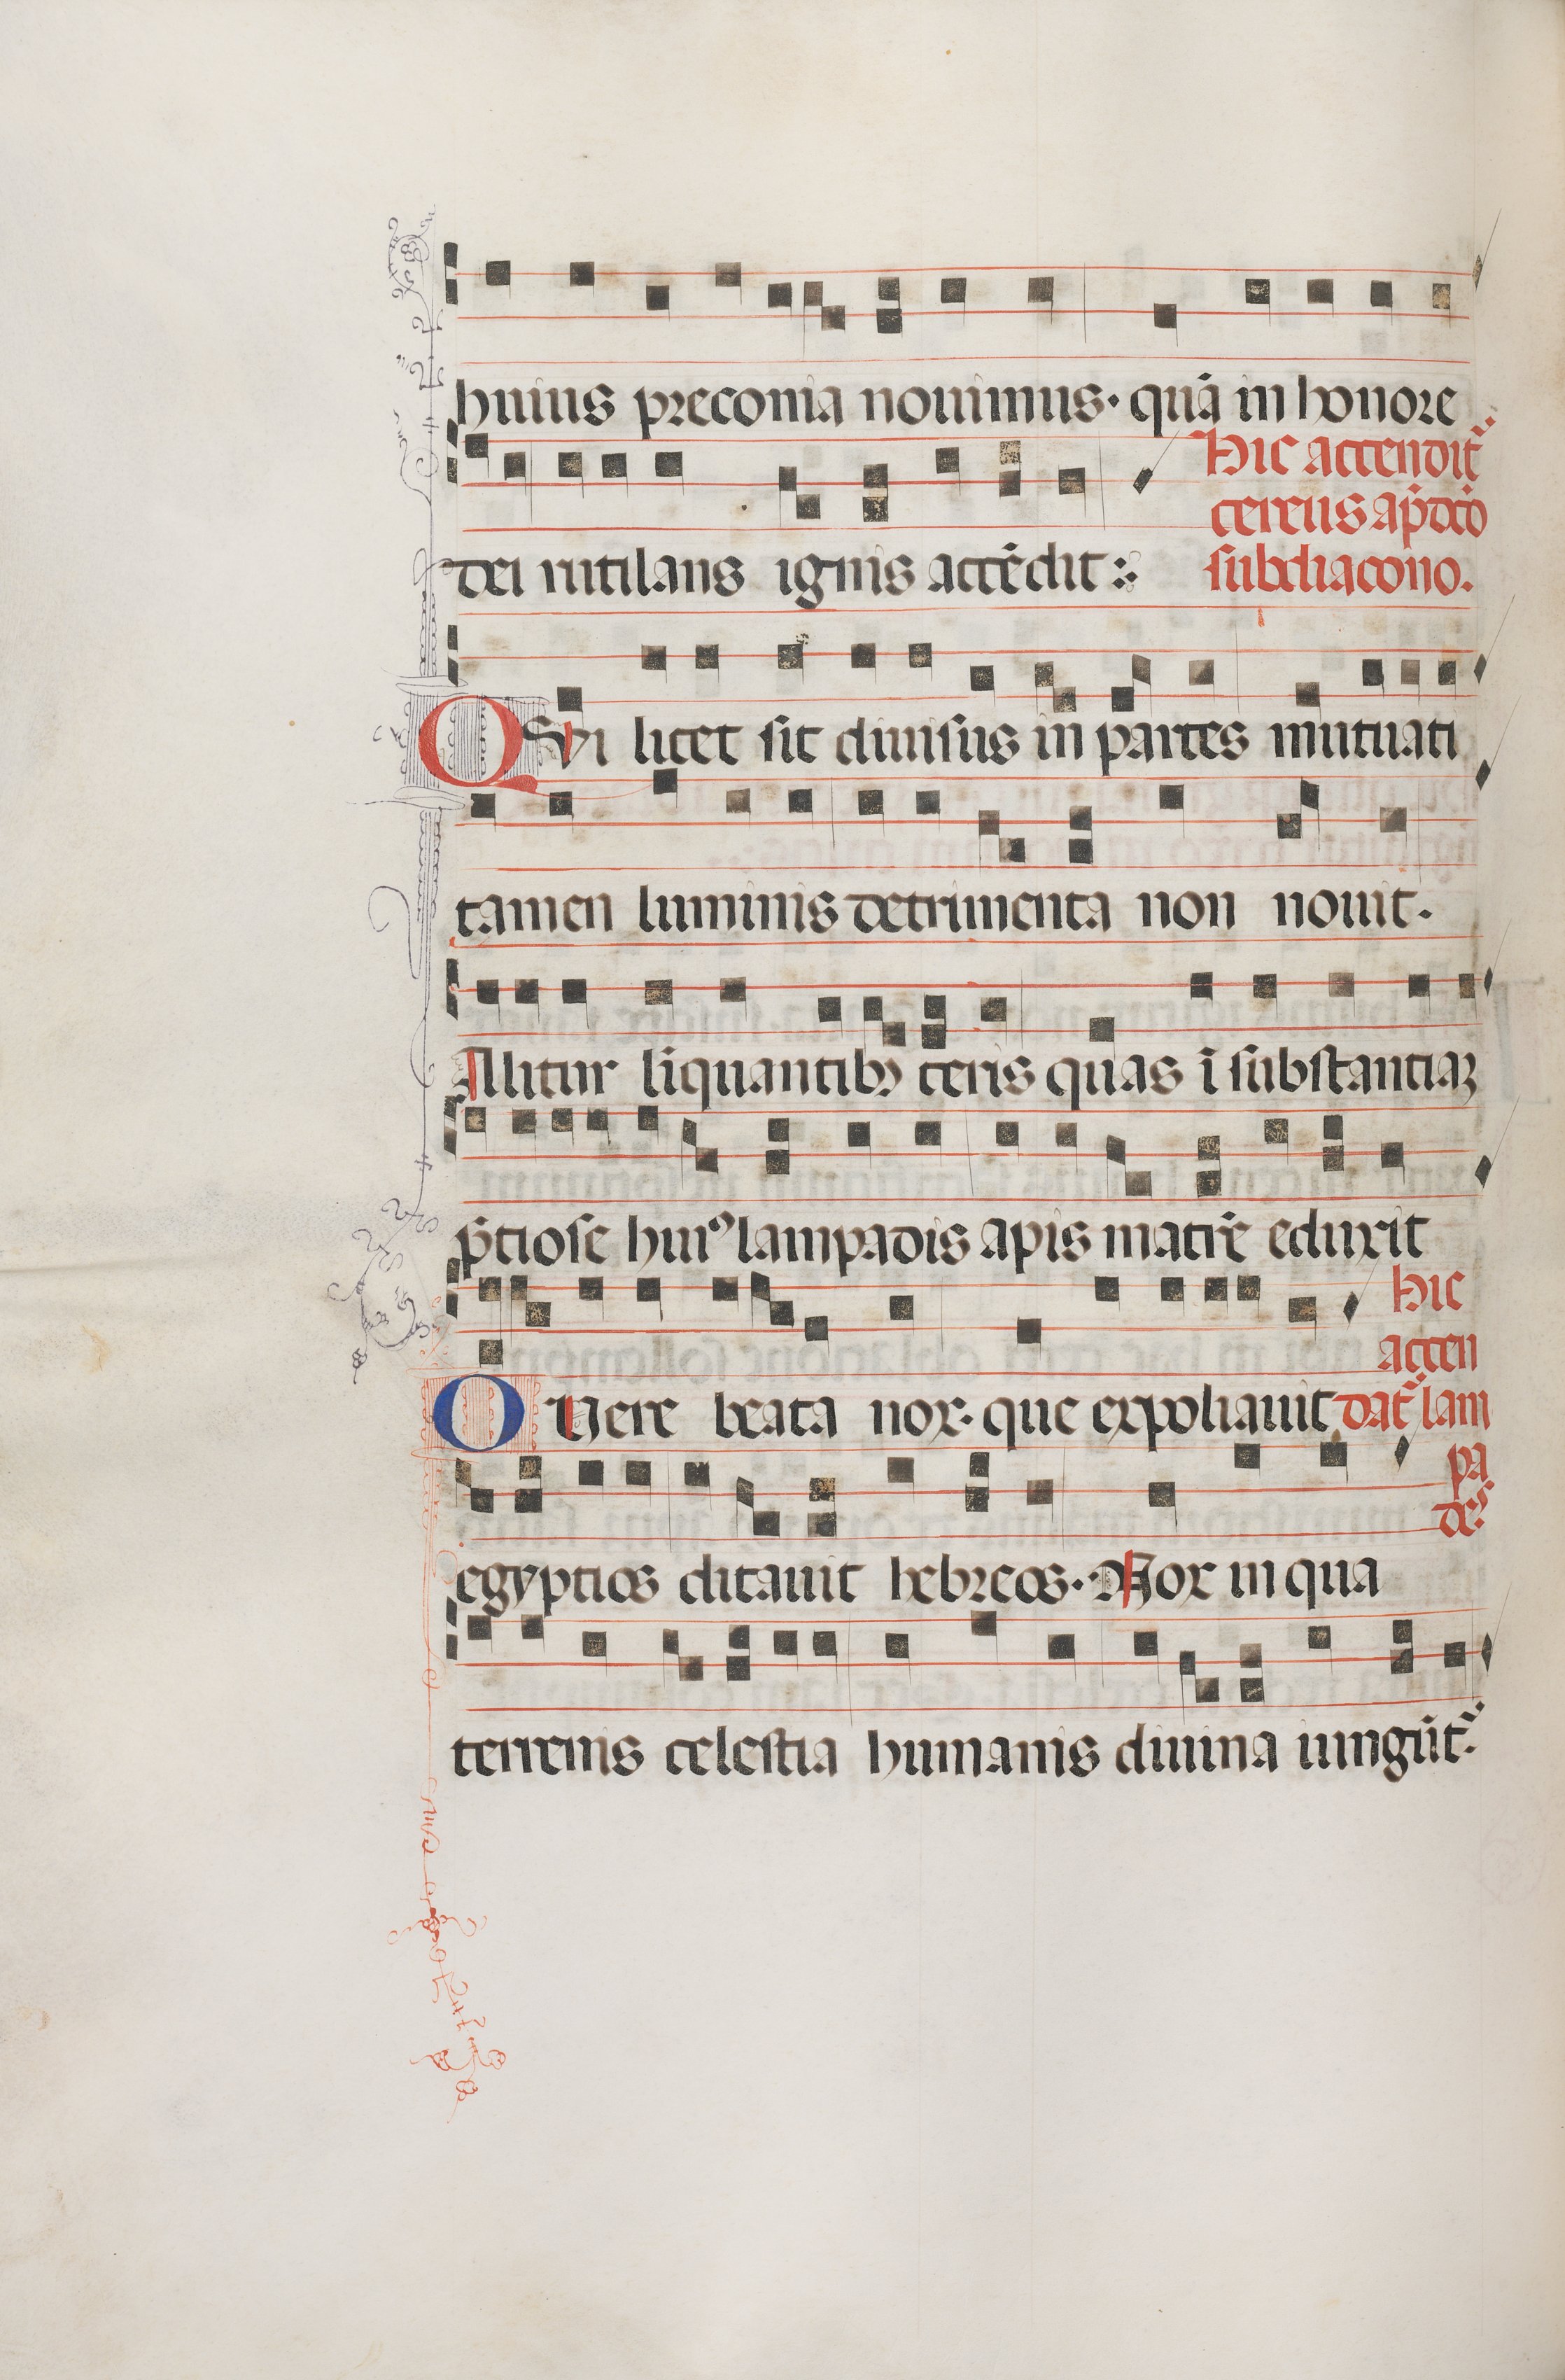 huius preconia nouimus· quā in honore
dei rutilans ignis accēdit :·
Hic accendit̉
cereus ap̄dc̄o
subdiacono.
QVi licet sit diuisus in partes mutuati
tamen luminis detrimenta non nouit·
Alitur liquantibꝫ ceris quas ī substantiaꝫ
p̄tiose huiꝰ lampadis apis mater̄ eduxit
O Uere beata nox· que expoliauit
Hic
accen
dat̉ lam
pa
des
egyptios ditauit hebreos· Nox in qua
terrenis celestia humanis diuina iungūt̉·